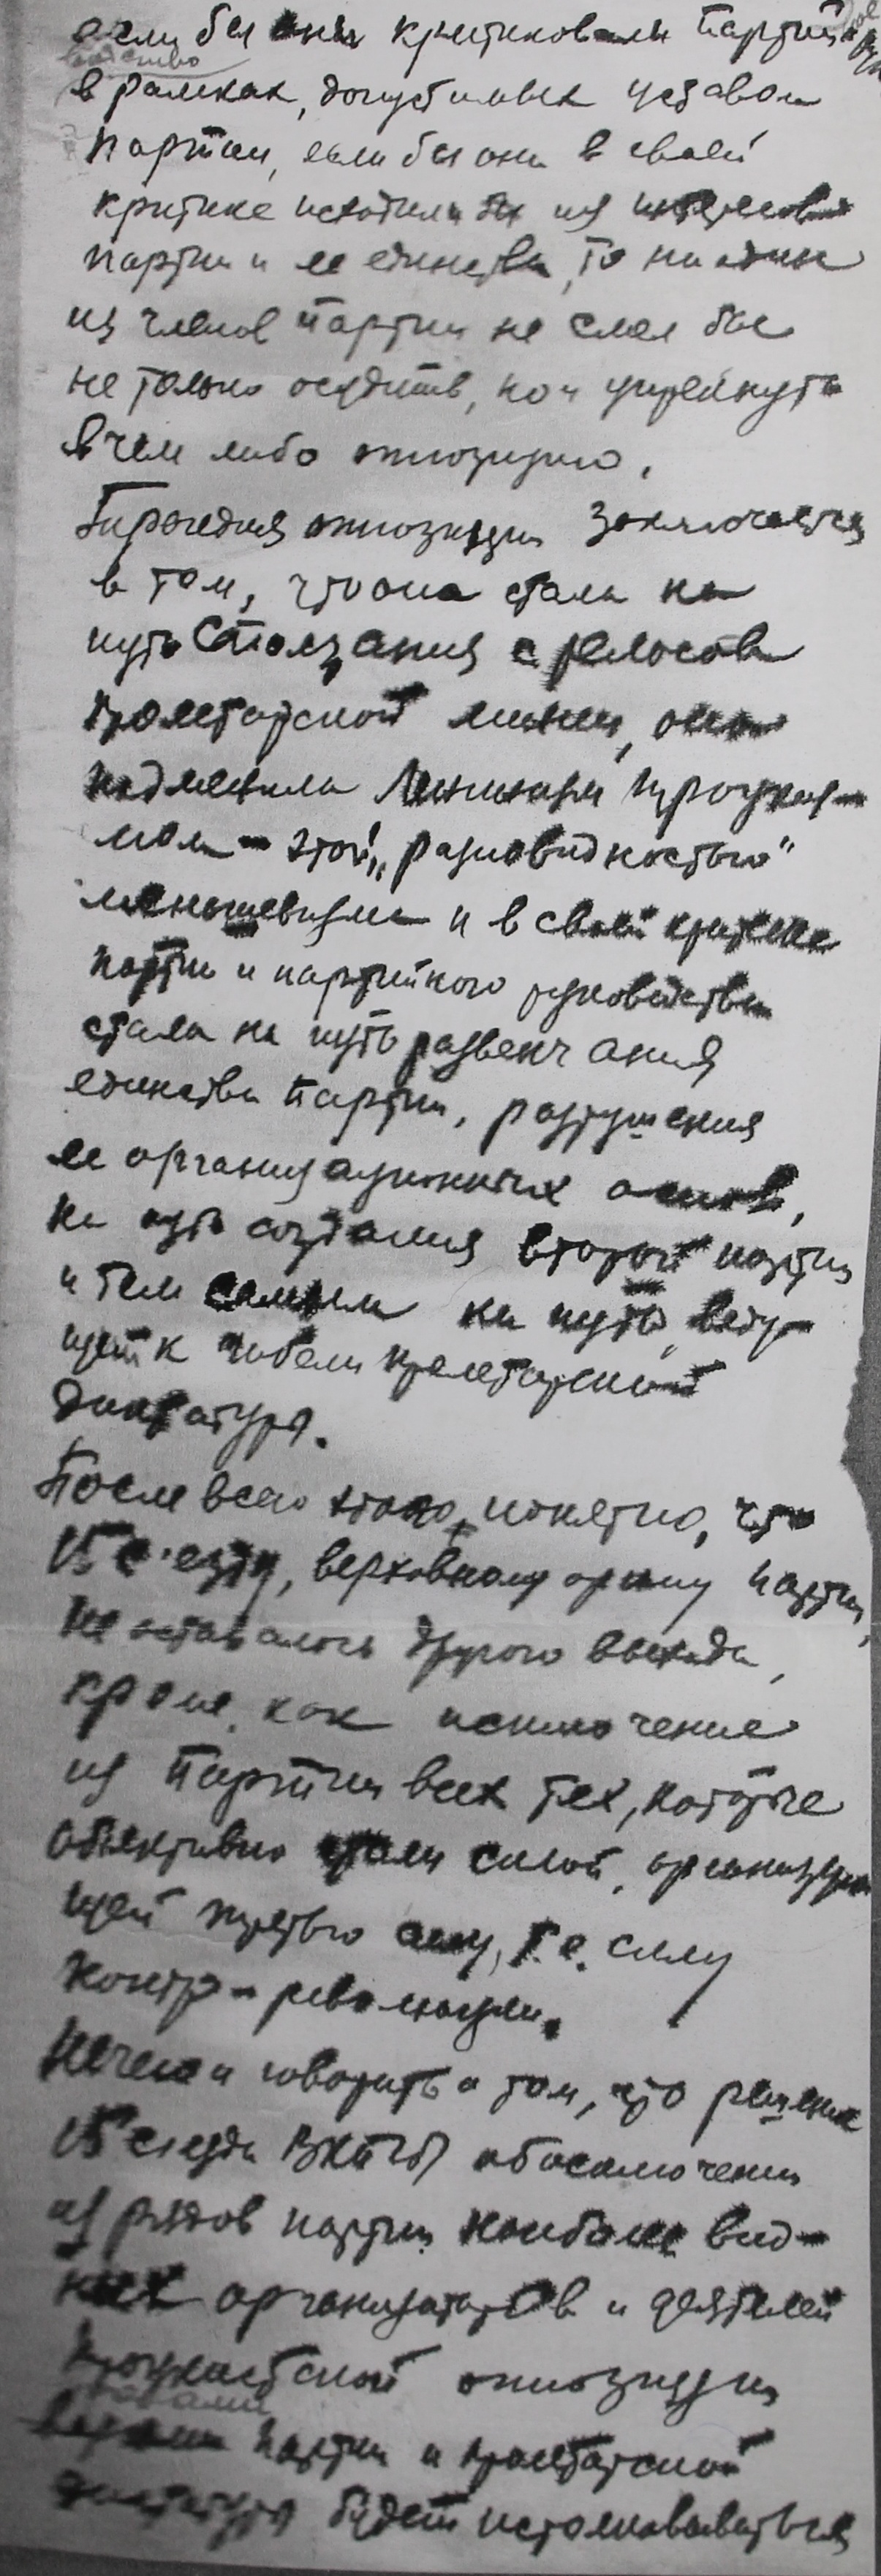 если бы они критиковали партий
в рамках, допустимых уставом
партии, если бы они в своей
критике исходили из интересов
партии и ее единства, то ни один
из членов партии не смел бы
не только осудить, но и упрекнуть
в чем либо оппозицию.
Трагедия оппозиции заключается
в том, что она стала на
путь сползания с рельсов
пролетарской линии, она
подменила Ленинизм троцкиз-
мом – этой „разновидностью"
меньшевизма и в своей критике
партии и партийного руководства
стала на путь развенчания
единства партии, разрушения
ее организационных основ,
на путь создания второй партии
и тем самым на путь, веду-
щей к гибели пролетарской
диктатуры.
После всего этого, понятно, что
15 с'езду, верховному органу партии,
не оставалось другого выхода,
кроме, как исключение
из партии всех тех, которые
объективно стали силой, организую
щей третью силу, т.е. силу
контр-революции.
Нечего и говорить о том, что решение
15 с'езда ВКП(б) об исключении
из рядов партии наиболее вид-
ных организаторов и деятелей
троцкистской оппозиции
врагами
партии и пролетарской
диктатуры будет истолковываться